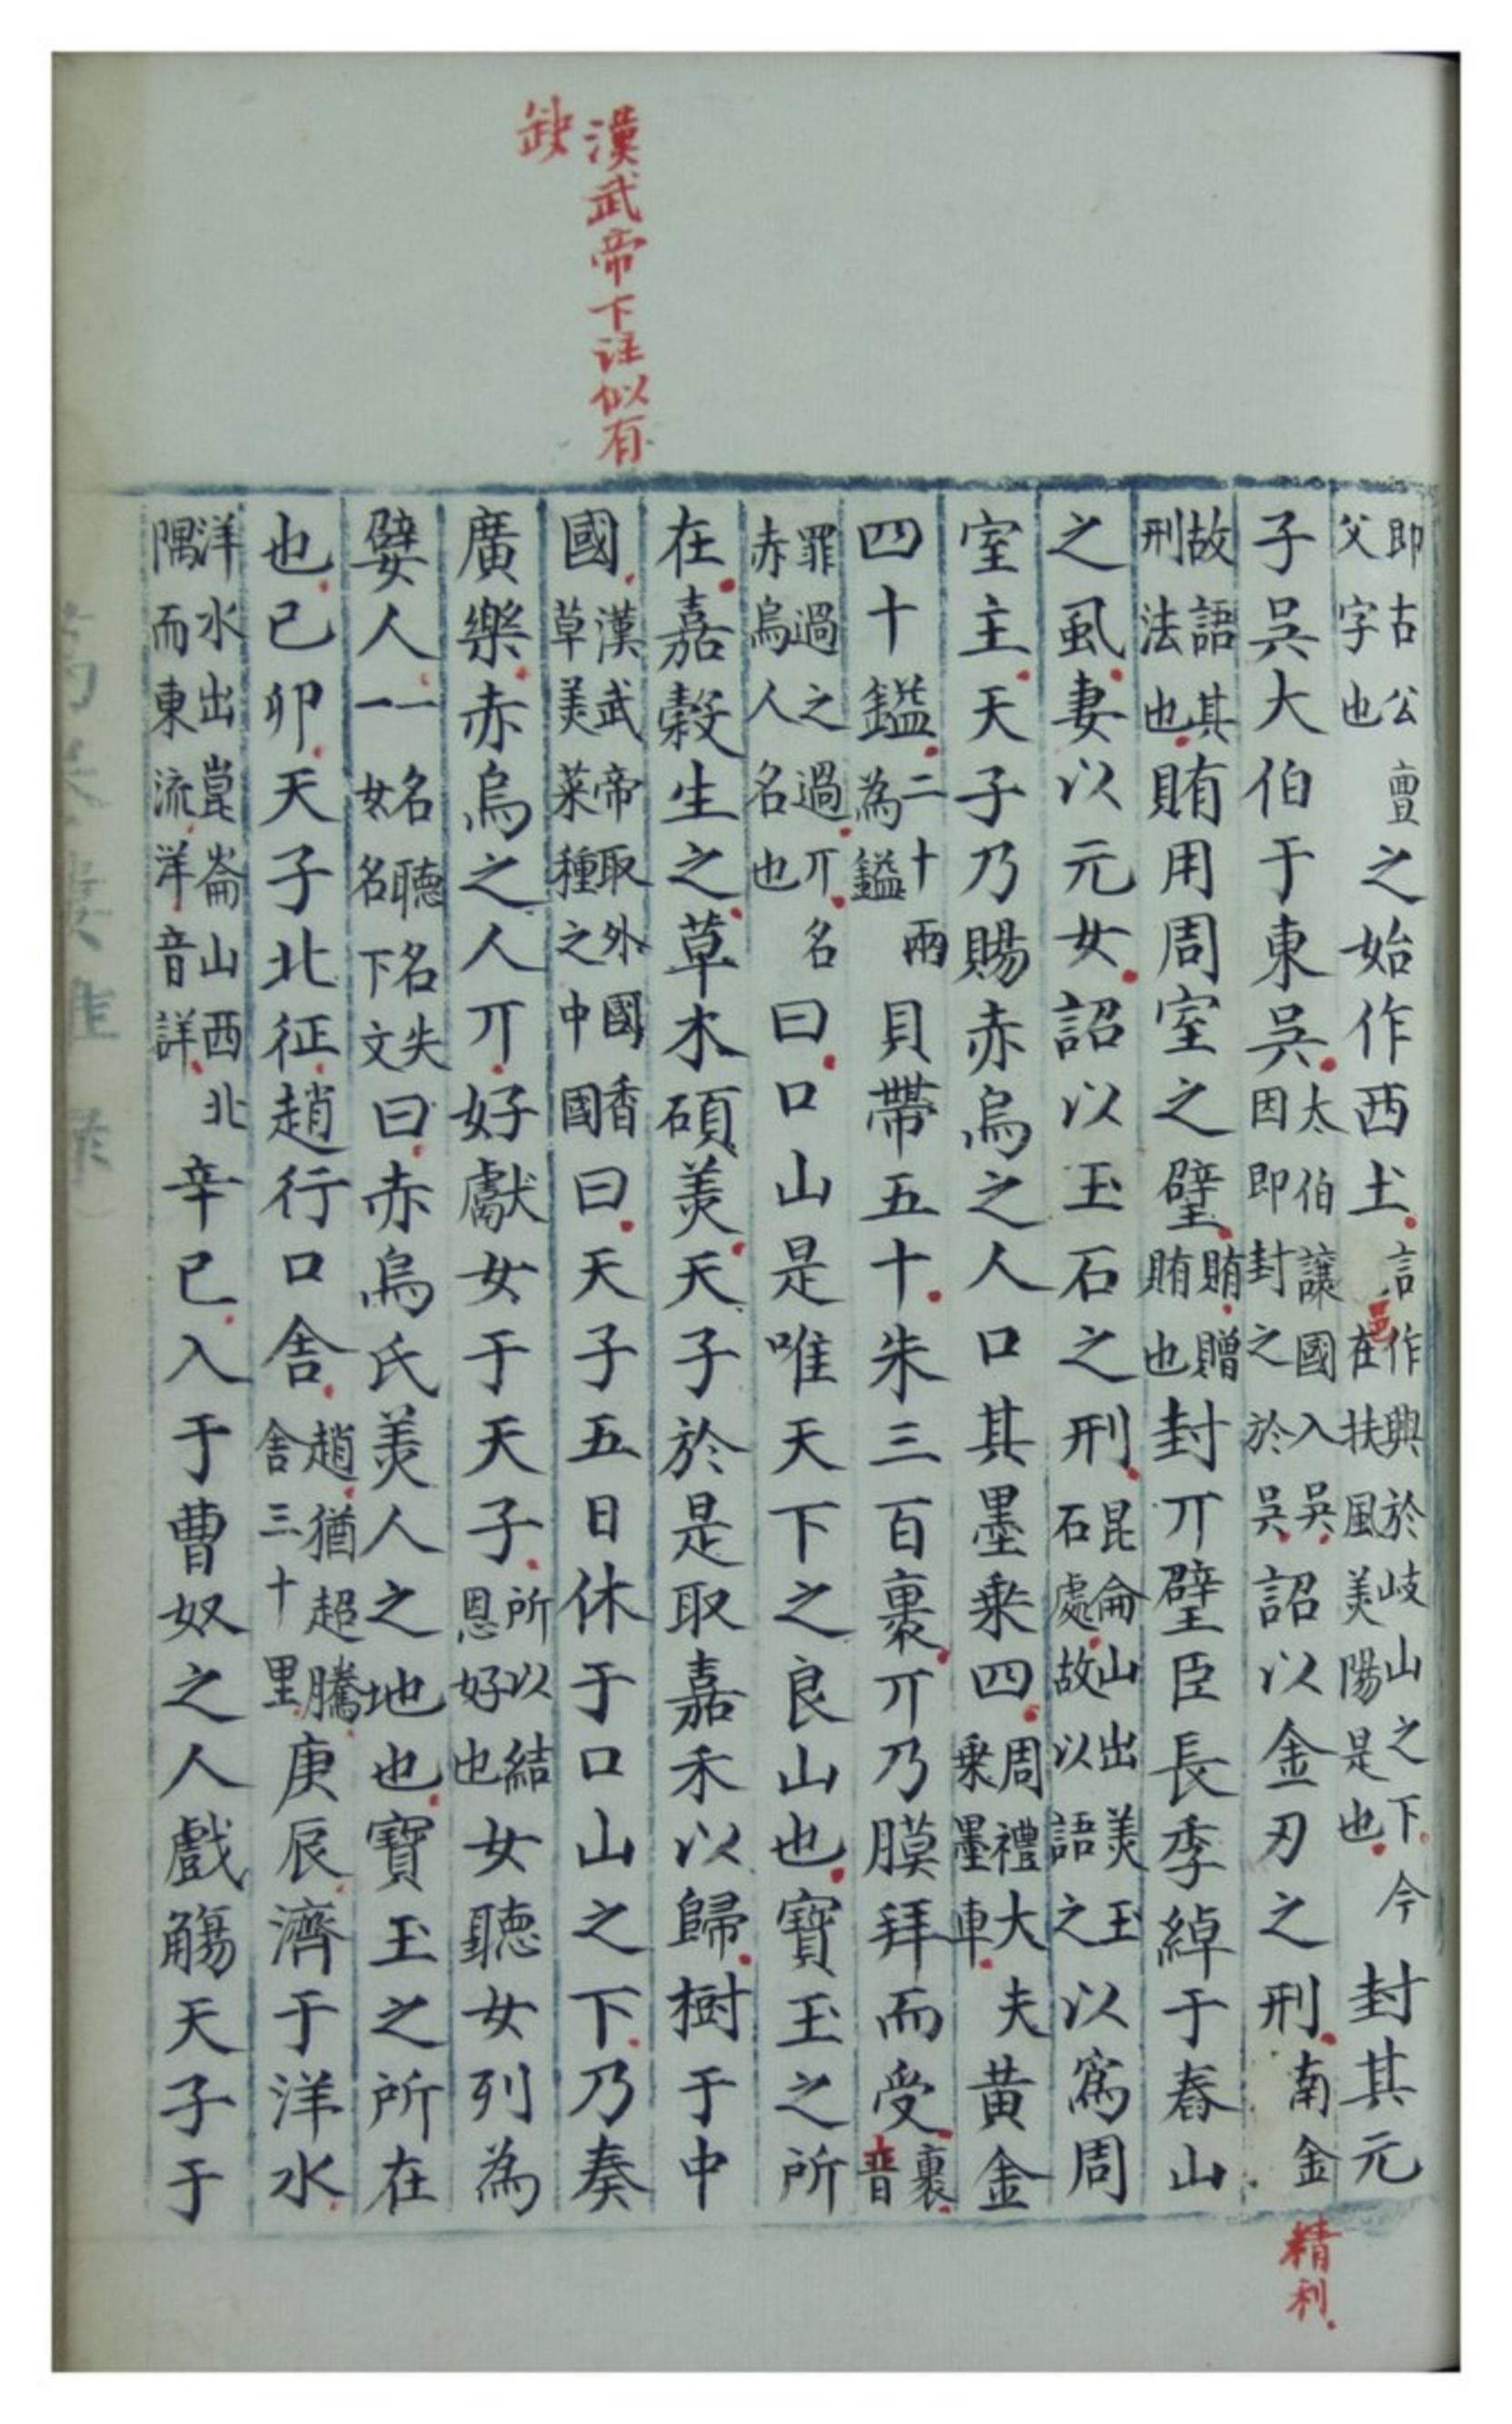 漢武帝下注似有
缺
即古公亶父字也之始作西土言作興於岐山之下今邑在扶風美陽是也封其元
子吳大伯于東吳太伯讓國入吳因即封之於吳詔以金刃之刑南金精利
故語其刑法也賄用周室之璧賄贈賄也封丌璧臣長季綽于舂山
之虱妻以元女詔以玉石之刑昆侖山出美玉石處故以語之以為周
室主天子乃賜赤烏之人口其墨乘四周禮大夫乘墨車黃金
四十鎰二十兩為鎰貝帶五十朱三百裹丌乃膜拜而受裹音
罪過之過丌名赤烏人名也曰口山是唯天下之良山也寶玉之所
在嘉穀生之草木碩美天子於是取嘉禾以歸樹于中
國漢武帝取外國香草美菜種之中國曰天子五日休于口山之下乃奏
廣樂赤烏之人丌好獻女于天子所以結恩好也女聽女列為
嬖人一一名聽名失女名下文曰赤烏氏美人之地也寶玉之所在
也己卯天子北征趙行口舍趙猶超騰舍三十里庚辰濟于洋水
洋水出崑崙山西北隅而東流洋音詳辛巳入于曹奴之人戲觴天子于